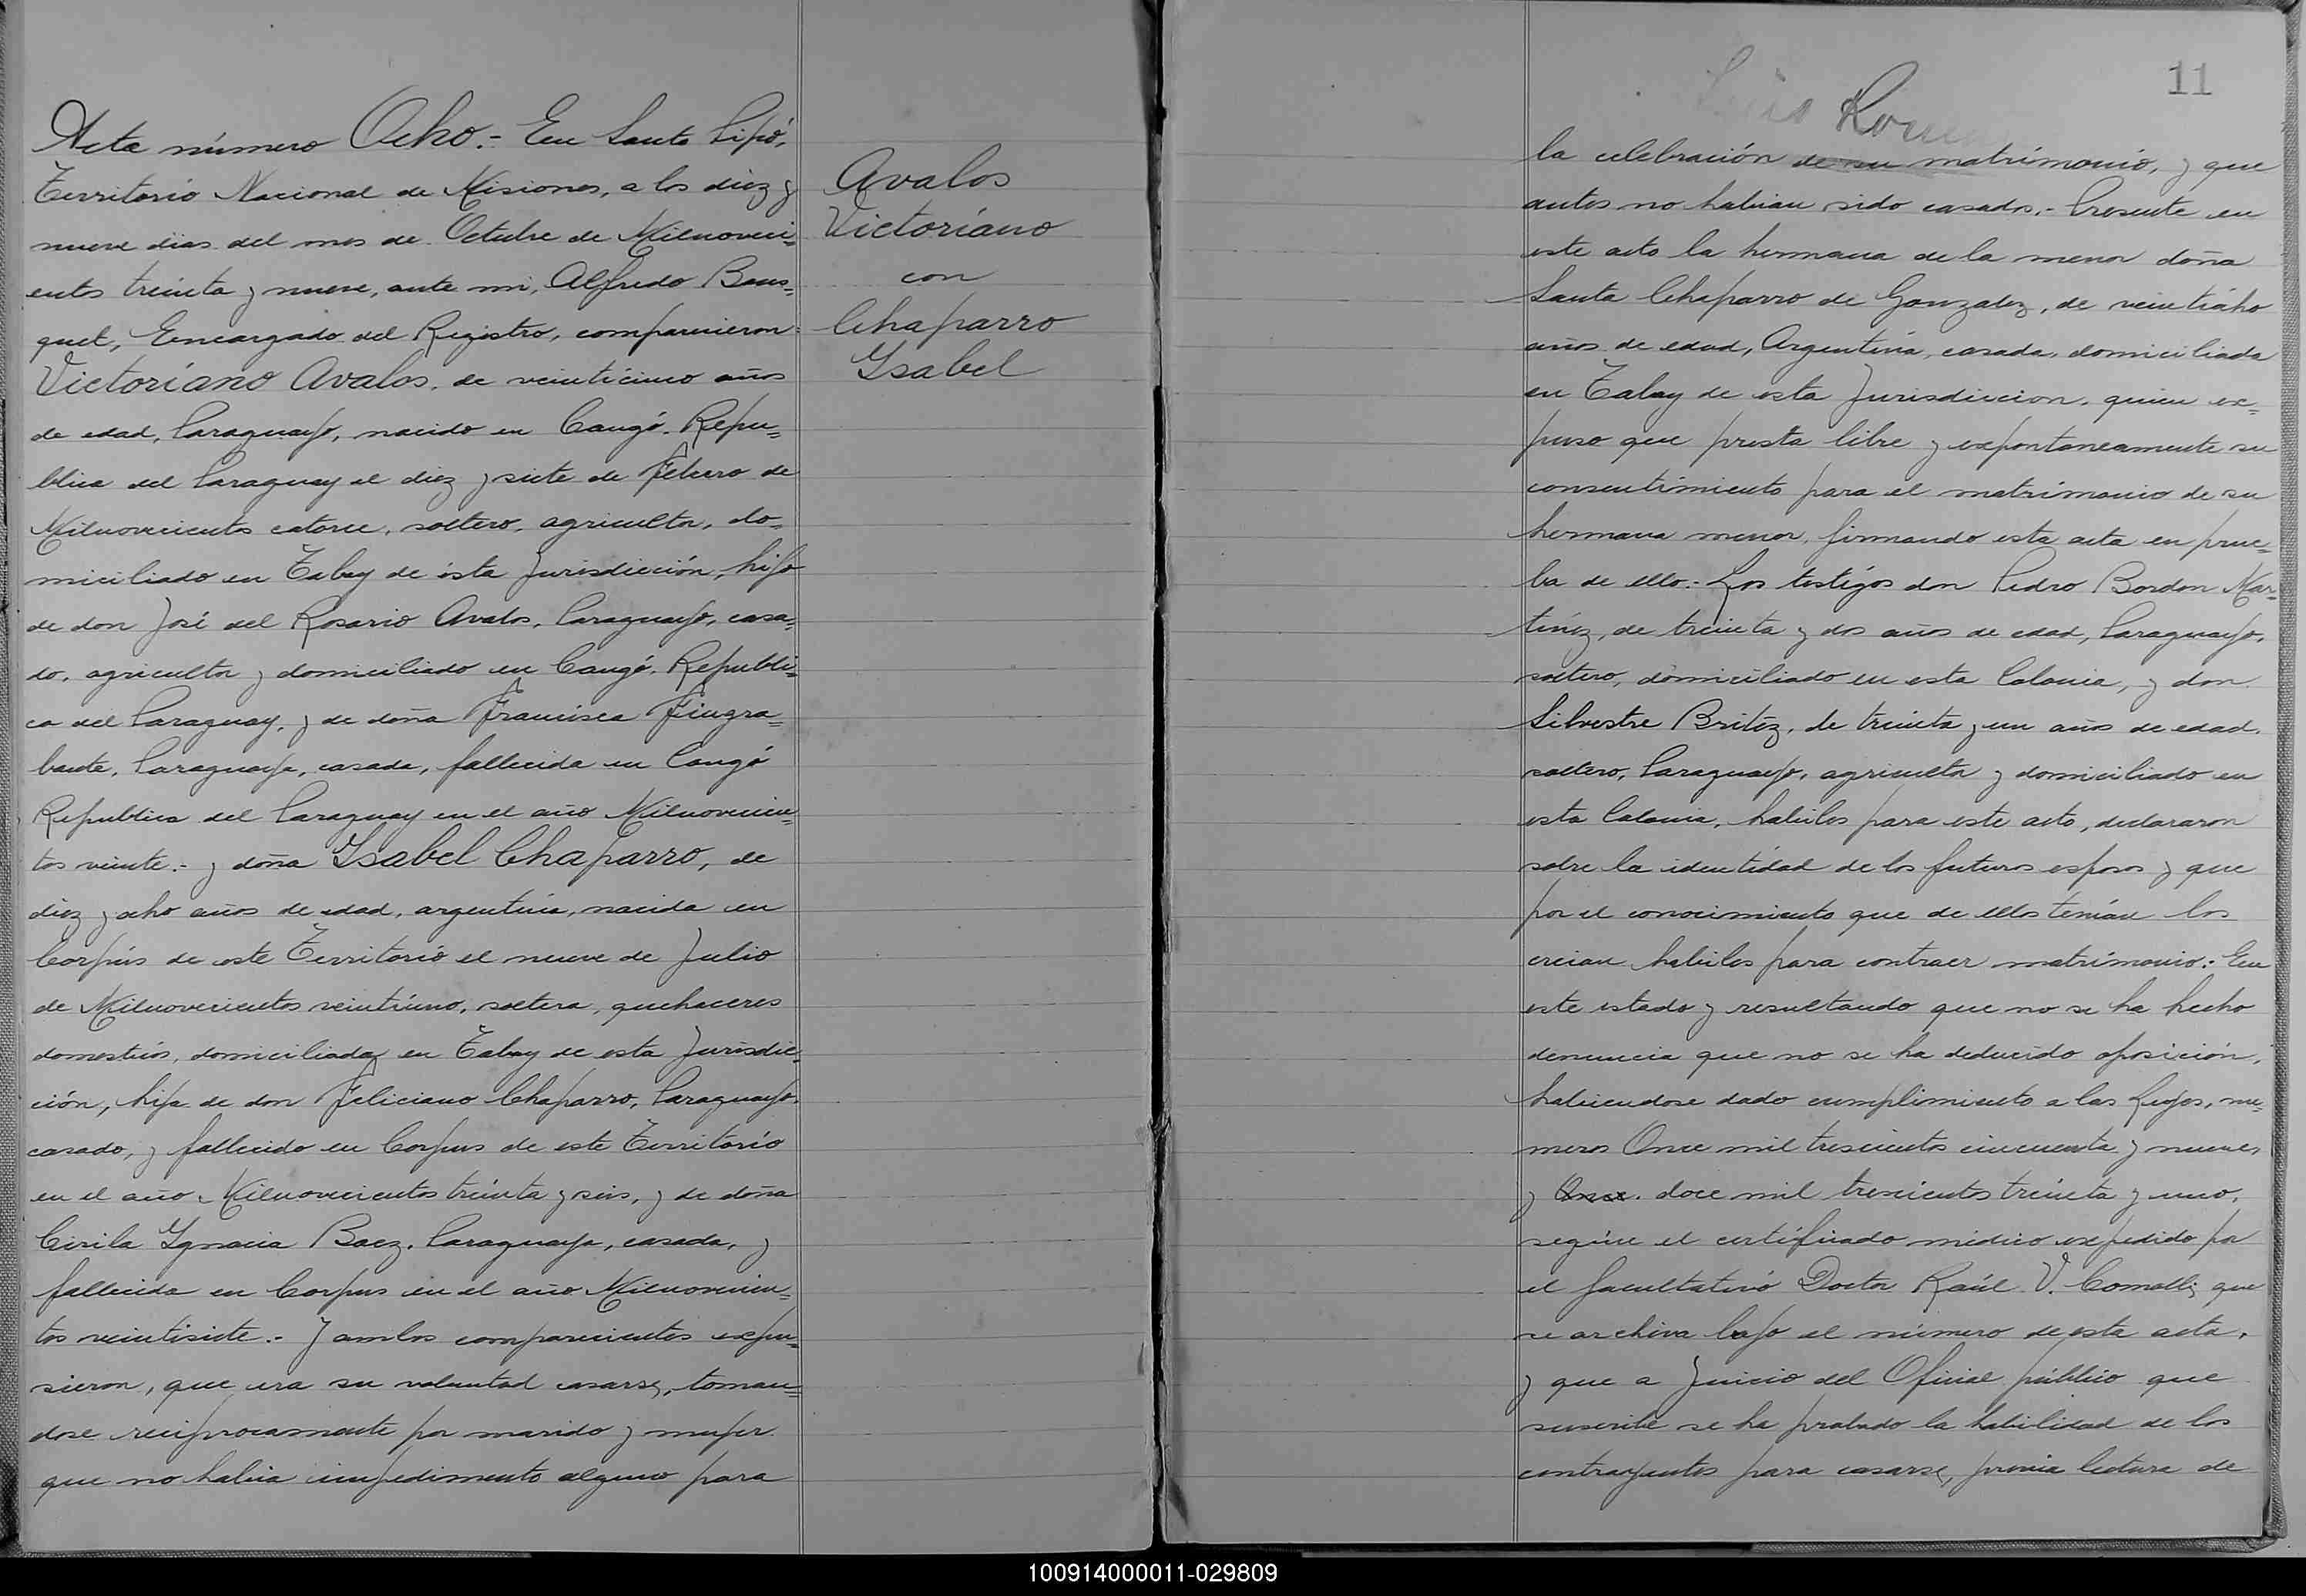 Acta número Ocho.- En Santo Pipó,
Territorio Nacional de Misiones, a los diez y
nueve dias del mes de Octubre de Milnoveci=
entos treinta y nueve, ante mi, Alfredo Bous=
quet, Encargado del Registro, comparecieron:
Victoriano Avalos, de veinticinco años
de edad, Paraguayo, nacido en Cangó. Repu=
blica del Paraguay el diez y siete de Febrero de
Milnovecientos catorce, soltero, agricultor, do=
miciliado en Tabay de ésta Jurisdicción, hijo
de don José del Rosario Avalos, Paraguayo, casa=
do, agricultor y domiciliado en Cangó. Republi=
ca del Paraguay, y de doña Francisca Fingra=
bante, Paraguaya, casada, fallecida en Cangó
Republica del Paraguay en el año Milnovecien=
tos veinte.- y doña Ysabel Chaparro, de
diez y ocho años de edad, argentina, nacida en
Corpús de este Territorio el nueve de Julio
de Milnovecientos veintiuno, soltera, quehaceres
domesticos, domiciliada en Tabay de esta Jurisdic=
ción, hija de don Feliciano Chaparro, Paraguayo,
casado, y fallecido en Corpus de este Territorio
en el año Milnovecientos treinta y seis, y de doña
Cirila Ygnacia Baez, Paraguaya, casada, y
fallecida en Corpus en el año Milnovecien=
tos veintisiete.- Y ambos comparecientes expu=
sieron, que era su voluntad casarse, toman=
dose reciprocamente por marido y mujer
que no habia impedimento alguno para
Avalos
Victoriano
con
Chaparro
Ysabel
11
Luis Rom
la celebración de su matrimonio, y que
antes no habian sido casados.- Presente en
este acto la hermana de la menor doña
Santa Chaparro de Gonzalez, de veintiocho
años de edad, Argentina, casada, domiciliada
en Tabay de esta Jurisdiccion, quien ex=
puso que presta libre y expontaneamente su
consentimiento para el matrimonio de su
hermana menor, firmando esta acta en prue=
ba de ello.- Los testigos don Pedro Bordon Mar=
tinez, de treinta y dos años de edad, Paraguayo,
soltero, domiciliado en esta Colonia, y don
Silvestre Britez, de treinta y un años de edad,
soltero, Paraguayo, agricultor y domiciliado en
esta Colonia, habiles para este acto, declararon
sobre la identidad de los futuros esposos y que
por el conocimiento que de ellos tenian los
creian habiles para contraer matrimonio.- En
este estado y resultando que no se ha hecho
denuncia que no se ha deducido oposición,
habiendose dado cumplimiento a las Leyes, nu=
meros Once mil trescientos cincuenta y nueve,
y Once. doce mil trescientos treinta y uno,
según el certificado médico expedido por
el facultativo Doctor Raúl V. Comolli, que
se archiva bajo el número de esta acta,
y que a Juicio del Oficial público que
suscribe se ha probado la habilidad de los
contrayentes para casarse, previa lectura de
100914000011-029809